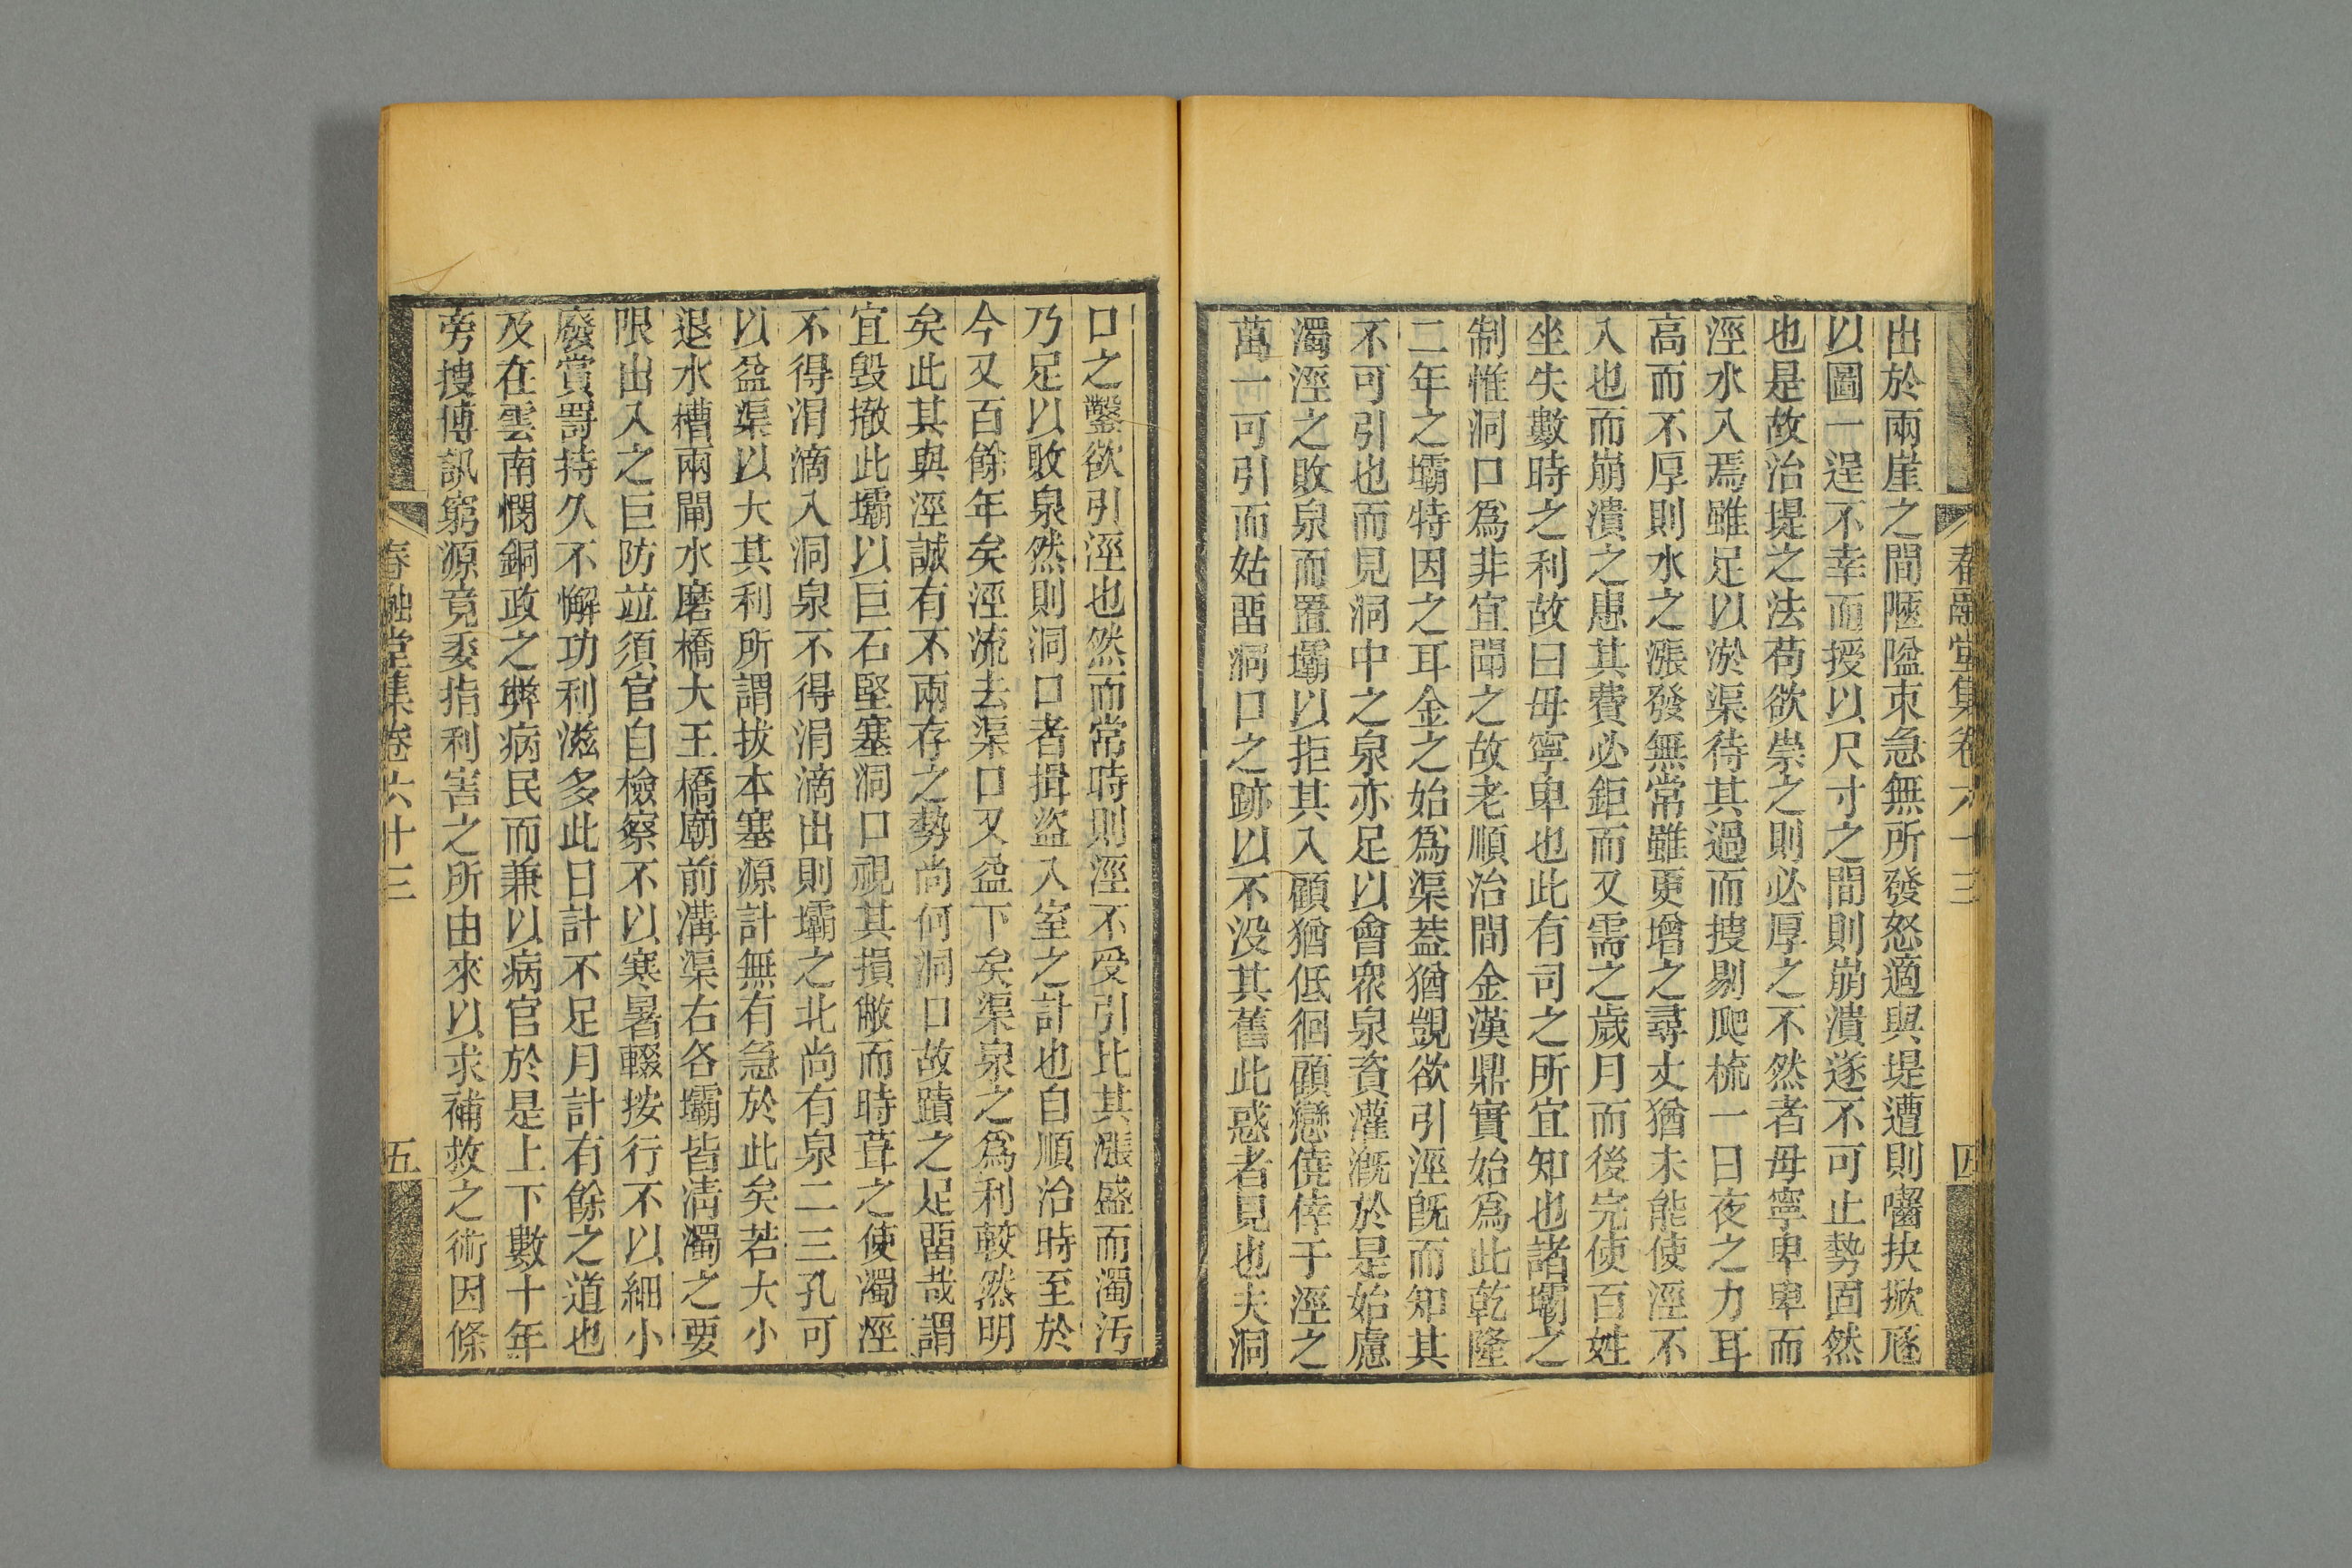 春融堂集卷六十三
四
出於兩崖之間陿隘束急無所發怒適與堤遭則囓抉掀𢋨
以圖一逞不幸而授以尺寸之間則崩潰遂不可止勢固然
也是故治堤之法苟欲崇之則必厚之不然者毋寧卑卑而
涇水入焉雖足以淤渠待其過而搜剔爬梳一日夜之力耳
高而不厚則水之漲發無常雖更增之尋丈猶未能使涇不
入也而崩潰之患其費必鉅而又需之歲月而後完使百姓
坐失數時之利故曰毋寧卑也此有司之所宜知也諸壩之
制惟洞口爲非宜聞之故老順治間金漢鼎實始爲此乾隆
二年之壩特因之耳金之始爲渠葢猶覬欲引涇旣而知其
不可引也而見洞中之泉亦足以會衆泉資灌漑於是始慮
濁涇之敗泉而置壩以拒其入顧猶低徊顧戀僥倖于涇之
萬一可引而姑畱洞口之跡以不没其舊此惑者見也夫洞
口之鑿欲引涇也然而常時則涇不受引比其漲盛而濁汚
乃足以敗泉然則洞口者揖盜入室之計也自順治時至於
今又百餘年矣涇流去渠口又益下矣渠泉之爲利較然明
矣此其與涇誠有不兩存之勢尚何洞口故蹟之足畱哉謂
宜毀撤此壩以巨石堅塞洞口視其損敝而時葺之使濁涇
不得涓滴入洞泉不得涓滴出則壩之北尚有泉二三孔可
以益渠以大其利所謂拔本塞源計無有急於此矣若大小
退水槽兩閘水磨橋大王橋廟前溝渠右各壩皆淸濁之要
限出入之巨防竝須官自檢察不以寒暑輟按行不以細小
廢賞罸持久不懈功利滋多此日計不足月計有餘之道也
及在雲南憫銅政之弊病民而兼以病官於是上下數十年
旁搜博訊窮源竟委指利害之所由來以求補救之術因條
春融堂集卷六十三
五